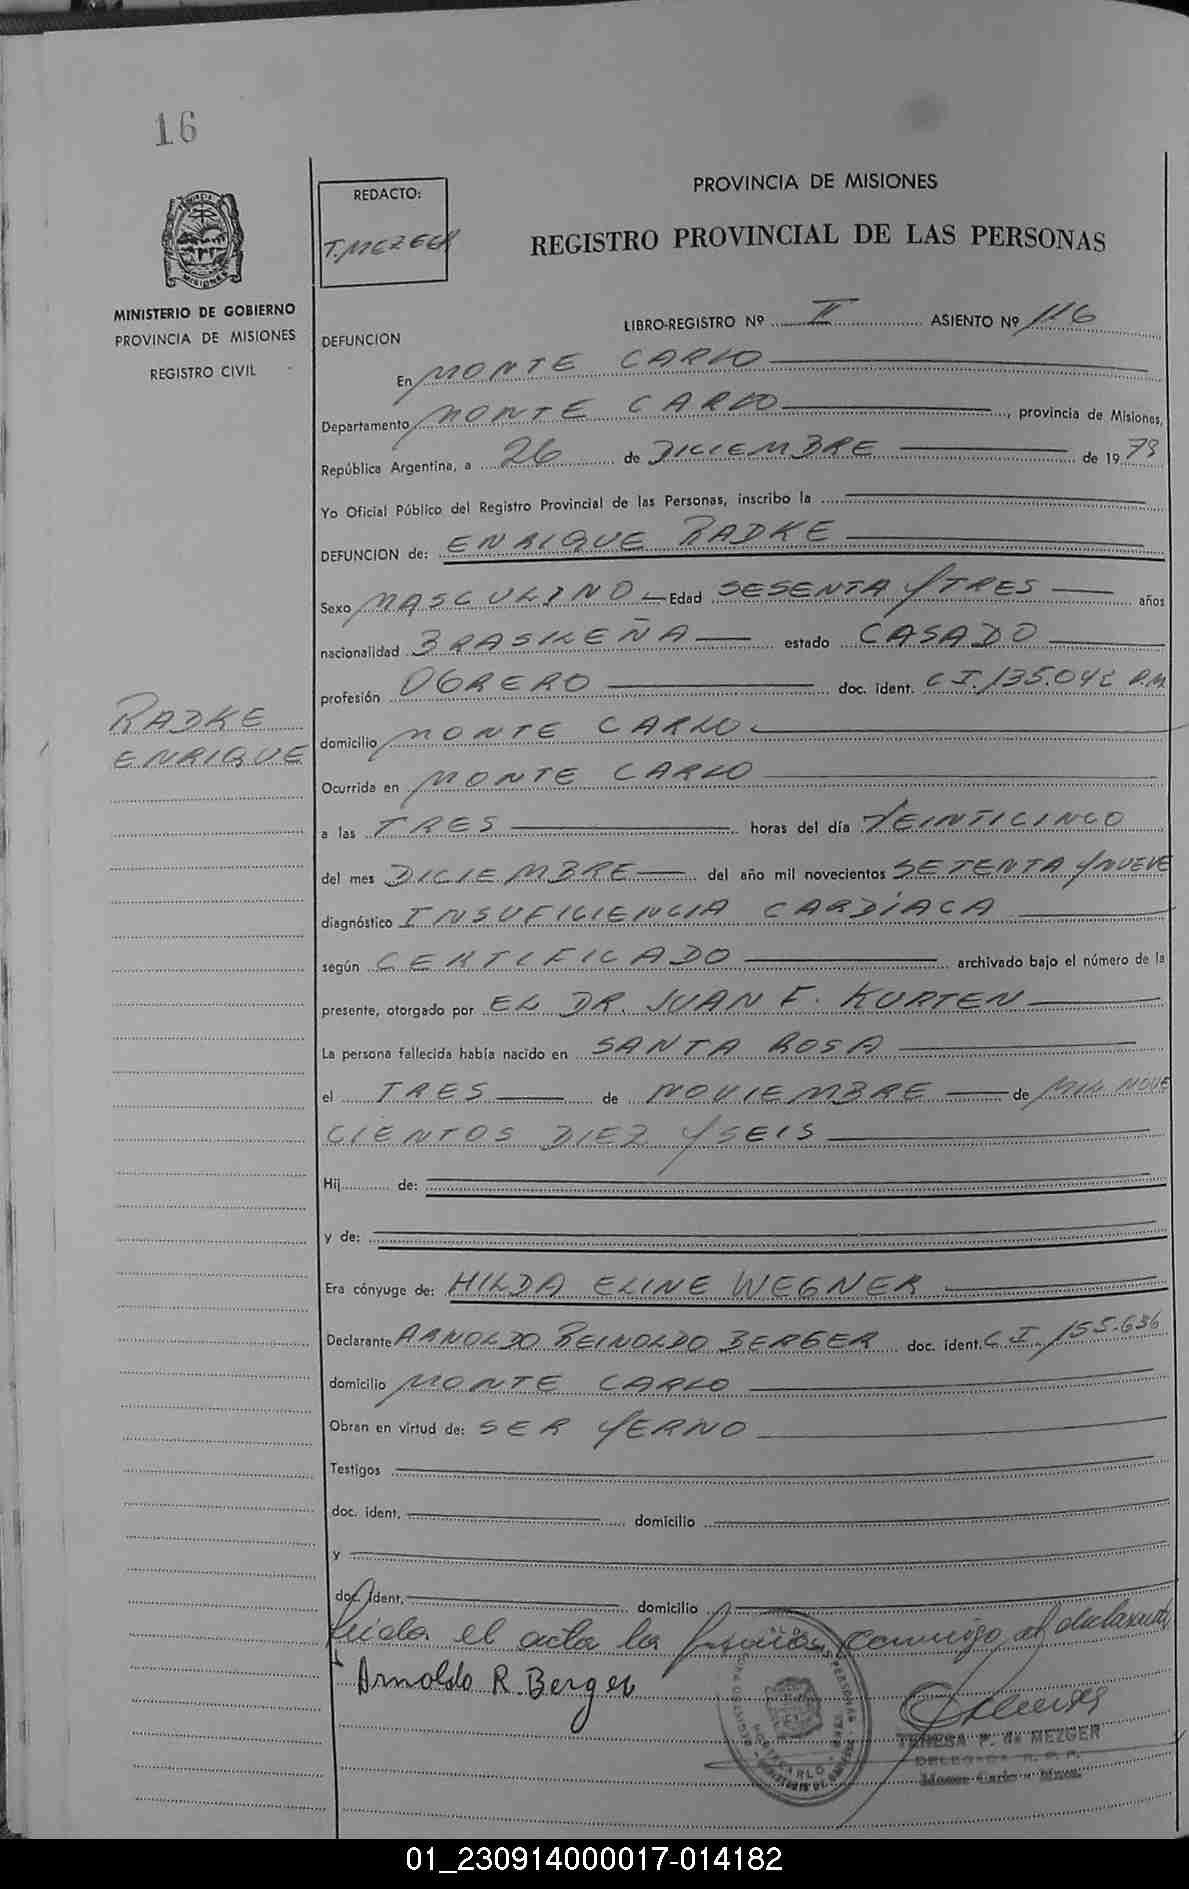 16
REDACTO:
T. MEZGER
PROVINCIA DE MISIONES
REGISTRO PROVINCIAL DE LAS PERSONAS
MISIONES
MINISTERIO DE GOBIERNO
PROVINCIA DE MISIONES
REGISTRO CIVIL
LIBRO-REGISTRO Nº II ASIENTO Nº 116
DEFUNCION
En MONTE CARLO
Departamento MONTE CARLO, provincia de Misiones,
República Argentina, a 26 de DICIEMBRE de 19 79
Yo Oficial Público del Registro Provincial de las Personas, inscribo la
DEFUNCION de: ENRIQUE RADKE
Sexo MASCULINO Edad SESENTA Y TRES años
nacionalidad BRASILEÑA estado CASADO
profesión OBRERO doc. ident. C I. 135.042 P.M
RADKE
ENRIQUE
domicilio MONTE CARLO
Ocurrida en MONTE CARLO
a las TRES horas del día VEINTICINCO
del mes DICIEMBRE del año mil novecientos SETENTA Y NUEVE
diagnóstico INSUFICIENCIA CARDÍACA
según CERTIFICADO archivado bajo el número de la
presente, otorgado por EL DR. JUAN F. KURTEN
La persona fallecida había nacido en SANTA ROSA
el TRES de NOVIEMBRE de MIL NOVE
CIENTOS DIEZ Y SEIS
Hij de:
y de:
Era cónyuge de: HILDA ELINE WEGNER
Declarante ARNOLDO REINOLDO BERGER doc. ident. C I. 155.636
domicilio MONTE CARLO
Obran en virtud de: SER YERNO
Testigos
doc. ident. domicilio
y
doc. ident. domicilio
Leída el acta la firma conmigo el declarante
Arnoldo R. Berger
TERESA P. de MEZGER
DELEGADA R. P. P.
Monte Carlo - Mnes.
01_230914000017-014182